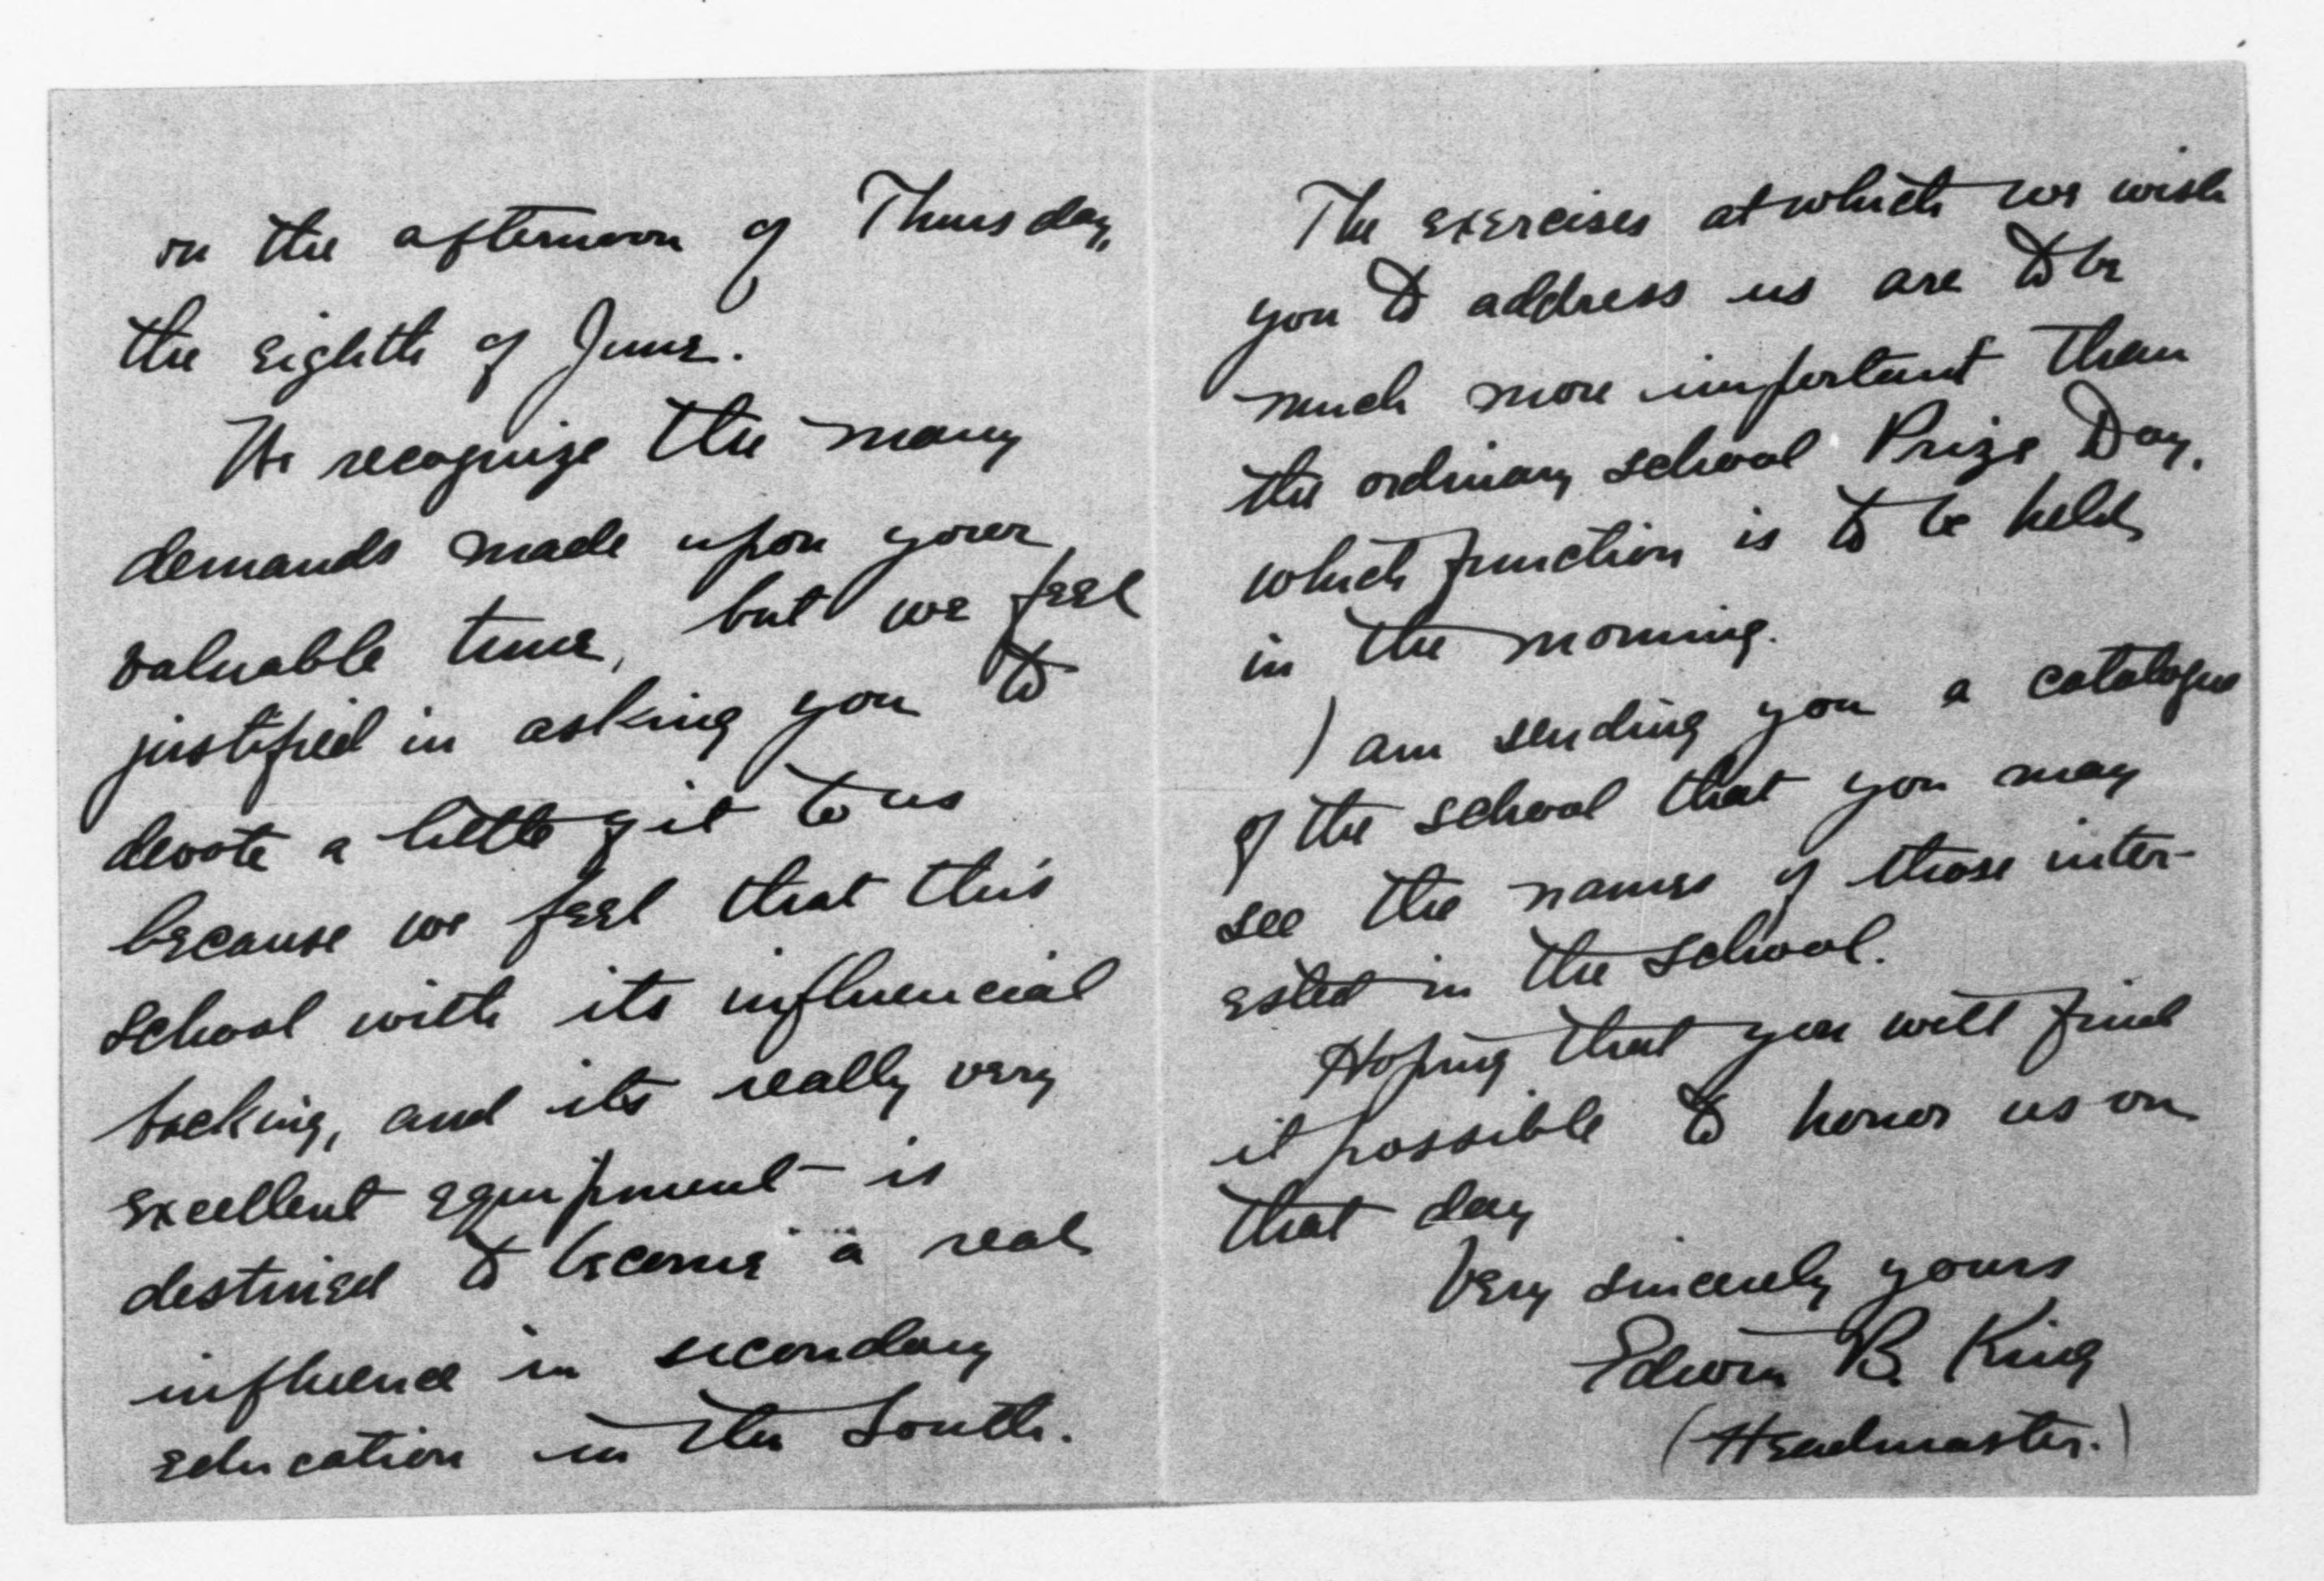 on the afternoon of Thursday,
the eighth of June.
We recognize the many
demands made upon your
valuable time, but we feel
justified in asking you to
devote a little of it to us
because we feel that this
school with its influencial
backing, and its really very
excellent equipment is
destined to become a real
influence in secondary
education in the South.
The exercises at which we wish
you to address us are to be
much more important than
the ordinary school Prize Day,
which function is to be held
in the morning.
I am sending you a catalogue
of the school that you may
see the names of those inter-
ested in the school.
Hoping that you will find
it possible to honor us on
that day
Very sincerely yours
Edwin B. King
(Headmaster.)